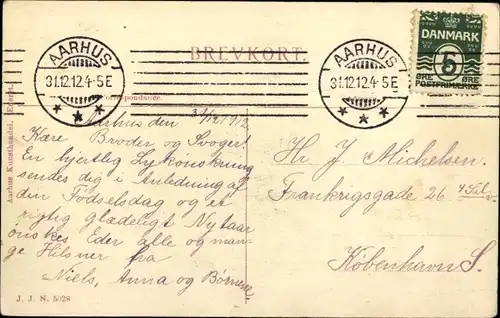 BREVKORT.
AARHUS
31.12.12.4-5E
AARHUS
31.12.12.4-5E
DANMARK
5
ØRE ØRE
POSTFRIMÆRKE
Aarhus Kunsthandel,
Aarhus den 31/12 1912
Kære Broder og Svoger.
En hjertlig Lykønskning
sendes dig i Anledning af
din Fødselsdag og et
rigtig glædeligt Nytaar
ønskes Eder alle og man-
ge Hilsner fra
Niels, Anna og Børnene.
Hr J. Michelsen.
Frankrigsgade 26. 4 Sal.
København S.
J. J. N. 5028